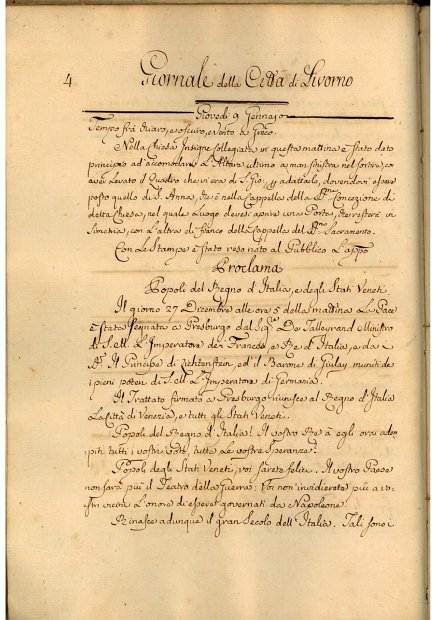 4 Giornale della Città di Livorno
Giovedì 9 Gennajo
Tempo frà chiaro, e oscuro, e vento a Greco.
Nella Chiesa Insigne Collegiata in questa mattina è stato dato
principio ad accomodare L'Altare ultimo a man sinistra nel sortire, co
aver levato il Quadro che vi era di S. Gio: adattarlo, dovendovi essere
posto quello di S. Anna, che è nella Cappella della Concezione di
detta Chiesa, nel quale Luogo devesi aprire una Porta, che restere in
Simetria, con L'altra di fianco della Cappella del Sacramento.
Con Le Stampe è stato reso noto al Pubblico L'app.o
Proclama
Popoli del Regno d'Italia, e degli Stati Veneti.
Il giorno 27 Dicembre alle ore 5 della mattina La Pace
è stata segnata a Presburgo dal Sig.e De Talleyrand Ministro
di S. M. L'Imperatore de Francesi, e Re d'Italia, e da L
Il Principe di Lichtenstein, ed'il Barone di Giulay muniti de
i pieni poteri di S. M. L'Imperatore di Germania.
Il Trattato firmato a Presburgo riunisce al Regno d'Italia
La Città di Venezia, e tutti gli Stati Veneti.
Popoli del Regno d'Italia! Il vostro Re à egli ora adem
piti tutti i vostri voti, tutte Le vostre Speranze?
Popoli degli Stati Veneti, voi sarete felici. Il vostro Paese
non sarà più il Teatro della Guerra: Voi non invidierete più a vo-
stri vicini L'onore di essere governati da Napoleone.
Rinasce adunque il gran Secolo dell'Italia. Tali sono i